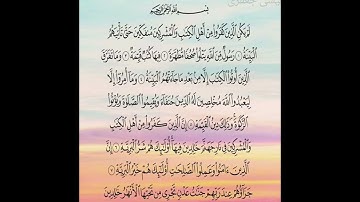 بسم الله الرحمن الرحيم
لَمْ يَكُنِ الَّذِينَ كَفَرُوا مِنْ أَهْلِ الْكِتَابِ وَالْمُشْرِكِينَ مُنفَكِّينَ حَتَّىٰ تَأْتِيَهُمُ
الْبَيِّنَةُ ١ رَسُولٌ مِّنَ اللَّهِ يَتْلُو صُحُفًا مُّطَهَّرَةً ٢ فِيهَا كُتُبٌ قَيِّمَةٌ ٣ وَمَا تَفَرَّقَ
الَّذِينَ أُوتُوا الْكِتَابَ إِلَّا مِن بَعْدِ مَا جَاءَتْهُمُ الْبَيِّنَةُ ٤ وَمَا أُمِرُوا إِلَّا
لِيَعْبُدُوا اللَّهَ مُخْلِصِينَ لَهُ الدِّينَ حُنَفَاءَ وَيُقِيمُوا الصَّلَاةَ وَيُؤْتُوا
الزَّكَوٰةَ وَذَٰلِكَ دِينُ الْقَيِّمَةِ ٥ إِنَّ الَّذِينَ كَفَرُوا مِنْ أَهْلِ الْكِتَابِ
وَالْمُشْرِكِينَ فِي نَارِ جَهَنَّمَ خَالِدِينَ فِيهَا أُولَٰئِكَ هُمْ شَرُّ الْبَرِيَّةِ ٦ إِنَّ
الَّذِينَ ءَامَنُوا وَعَمِلُوا الصَّالِحَاتِ أُولَٰئِكَ هُمْ خَيْرُ الْبَرِيَّةِ ٧
جَزَاؤُهُمْ عِندَ رَبِّهِمْ جَنَّاتُ عَدْنٍ تَجْرِي مِن تَحْتِهَا الْأَنْهَارُ خَالِدِينَ